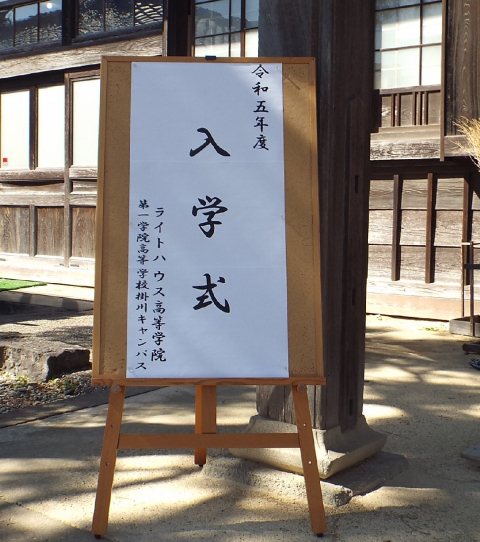 令和五年度
入学式
ライトハウス高等学院
第一学院高等学校掛川キャンパス